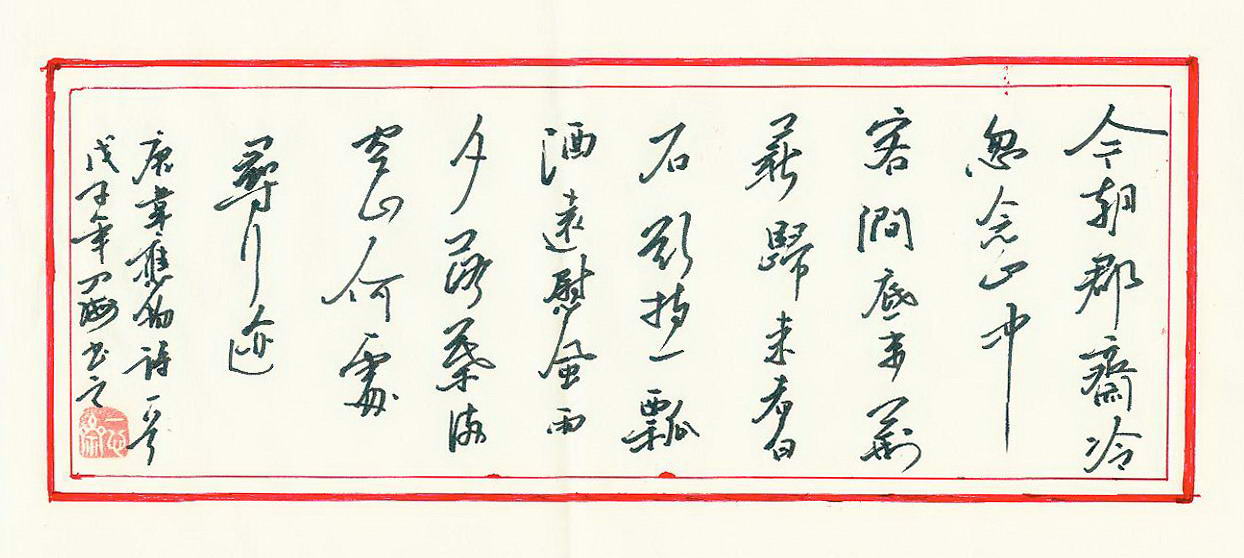 今朝郡齋冷
忽念山中
客澗底束荆
薪歸来煮白
石欲持一瓢
酒遠慰風雨
夕落葉满
空山何處
尋行迹
唐韋應物詩一首
戊子年海书之